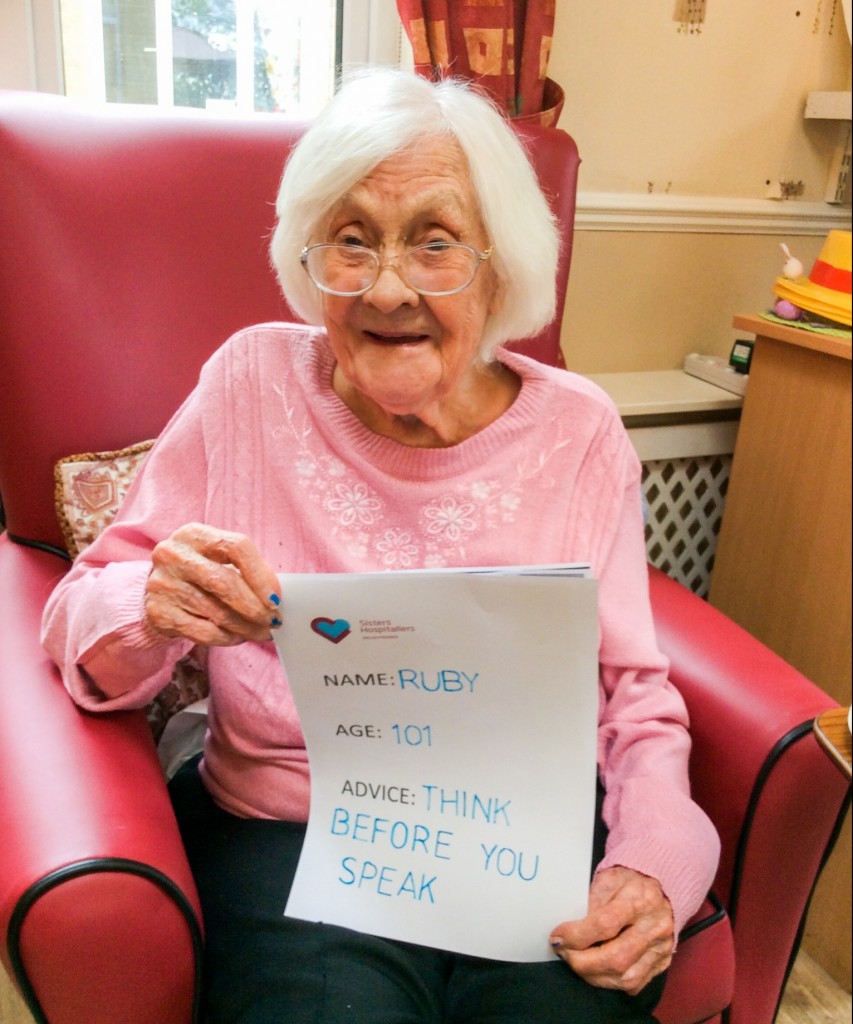 Sisters
Hospitallers
NAME: RUBY
AGE: 101
ADVICE: THINK
BEFORE YOU
SPEAK